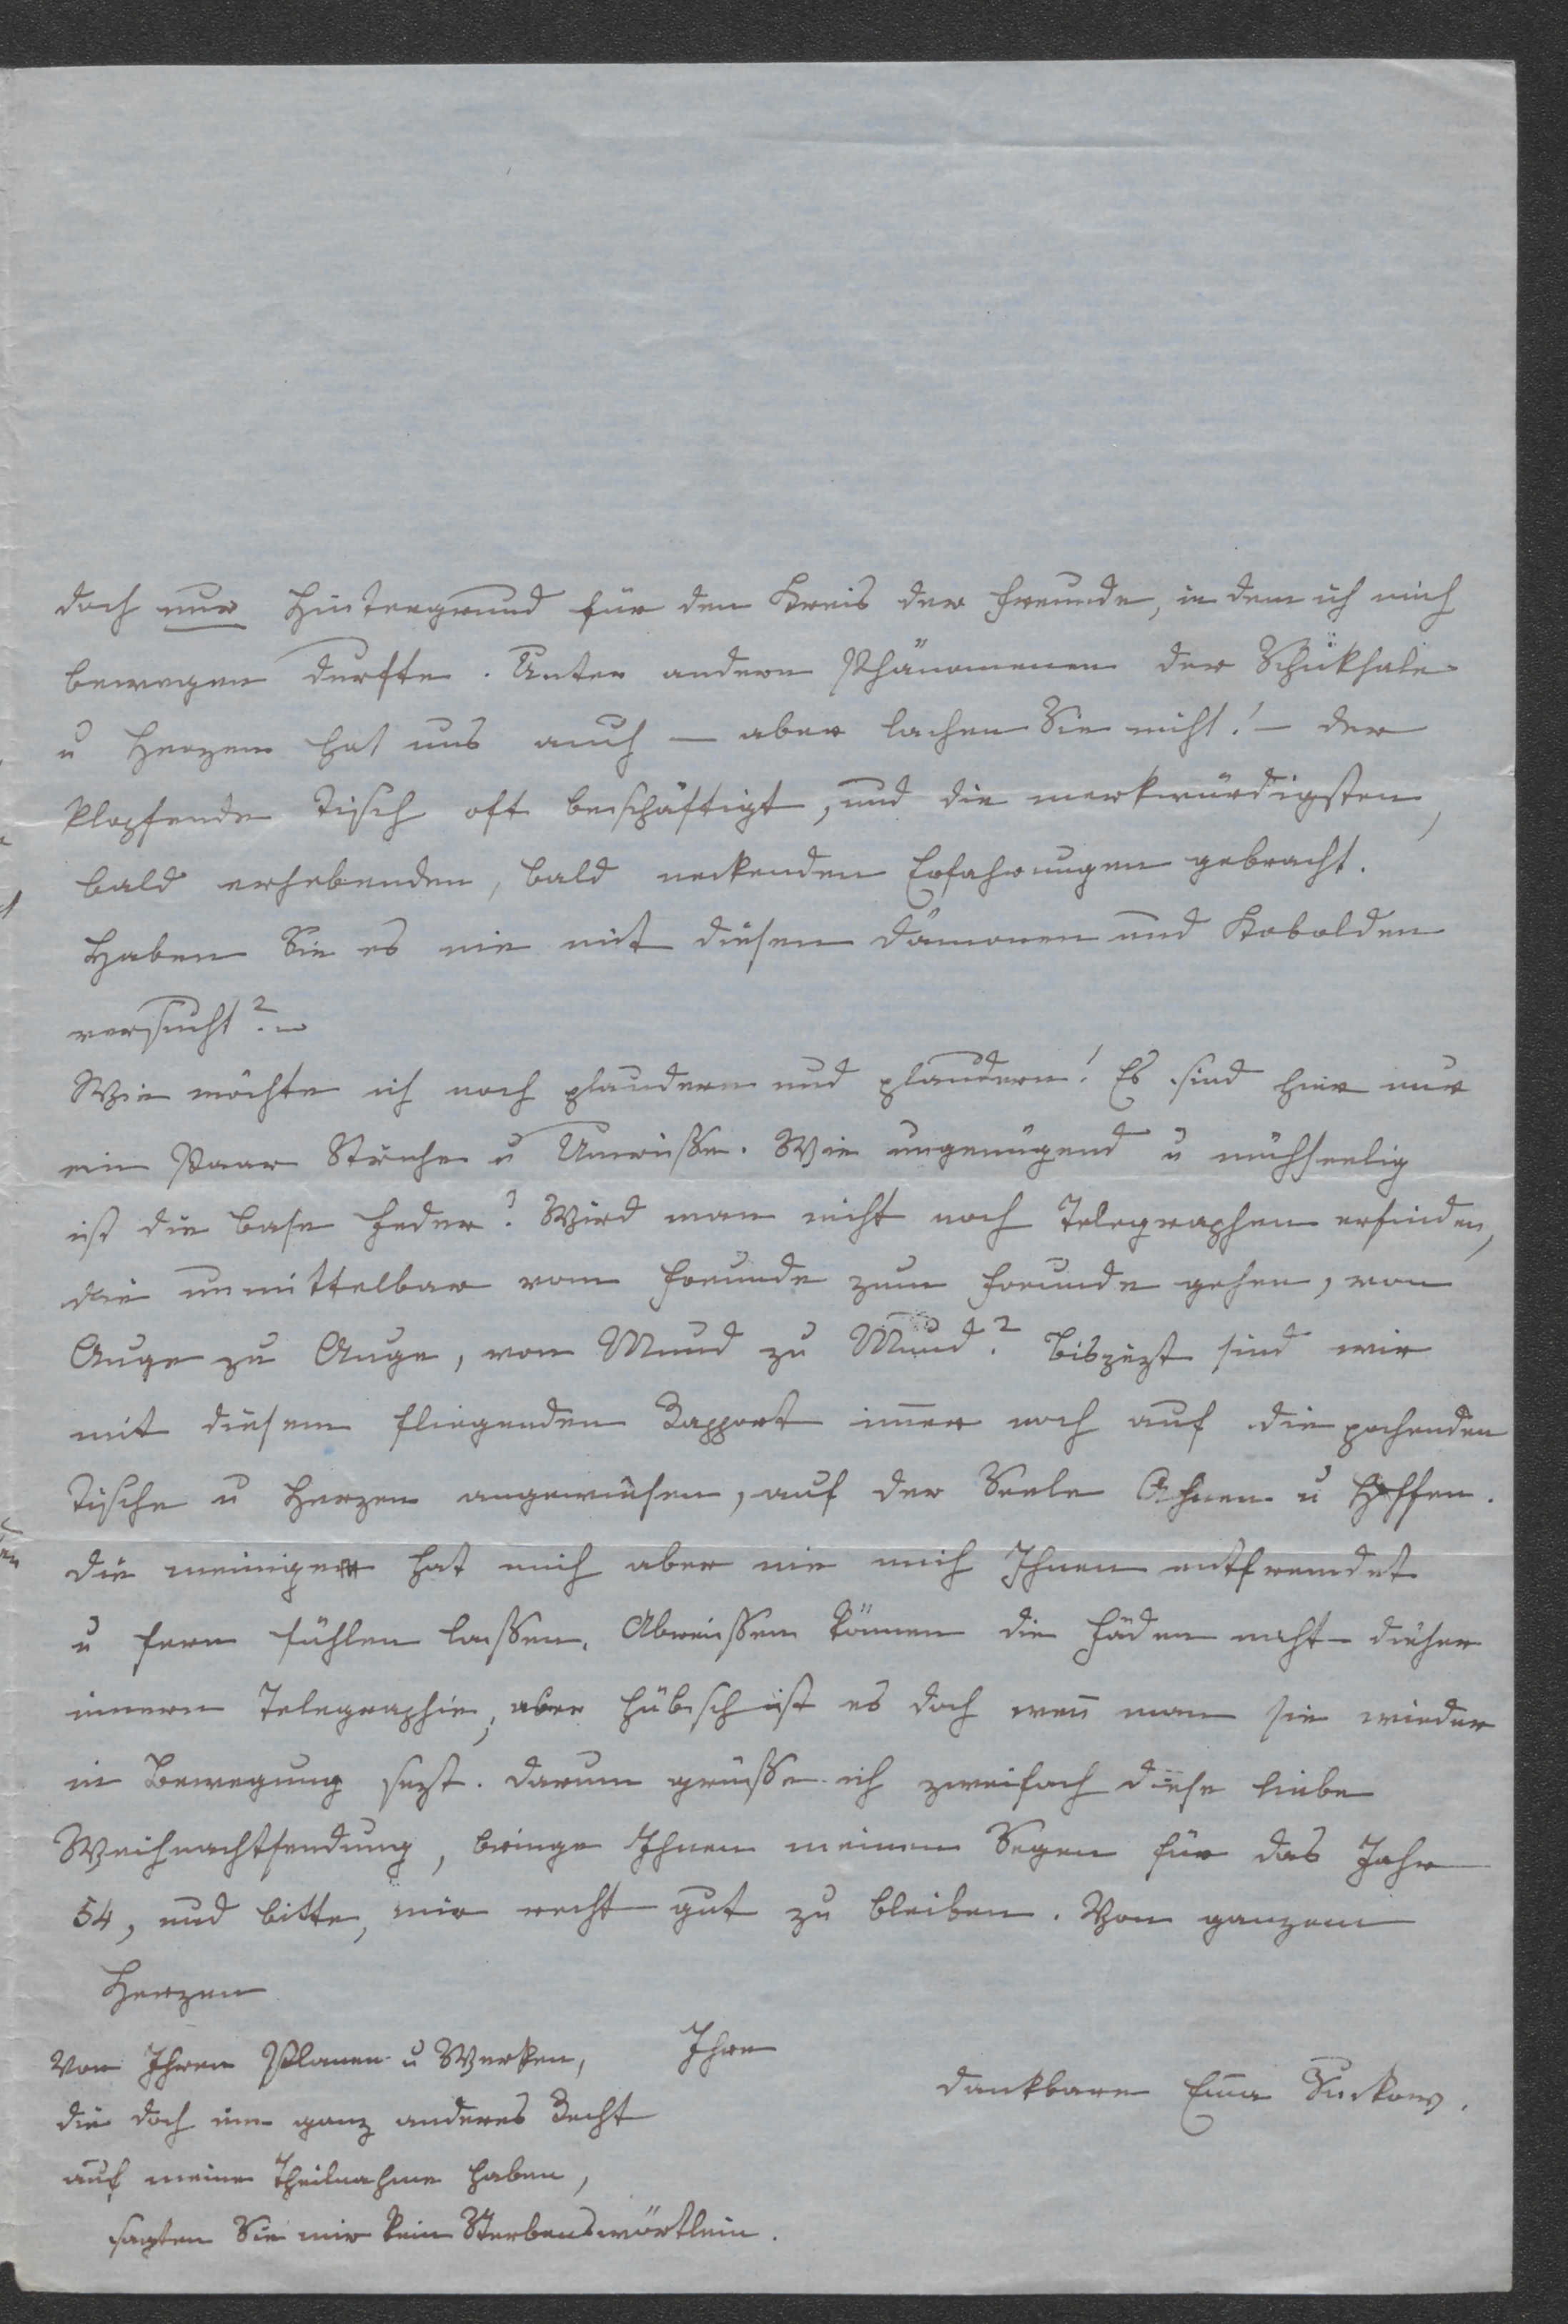 doch nur Hintergrund für den Kreis der Freunde, in dem ich mich
bewegen durfte. Unter andern Phänomenen der Schiksale
u Herzen hat uns auch — aber lachen Sie nicht! — der
klopfende Tisch oft beschäftigt, und die merkwürdigsten,
bald erhebenden, bald neckenden Erfahrungen gebracht.
Haben Sie es nie mit diesen Dämonen und Kobolden
versucht? —
Wie möchte ich noch plaudern und plaudern! Es sind hier nur
ein Paar Striche u Umrisse. Wie ungenügend u mühseelig
ist die base Feder? Wird man nicht noch Telegraphen erfinden,
die unmittelbar vom Freunde zum Freunde gehen, von
Auge zu Auge, von Mund zu Mund? Bis jezt sind wir
mit diesem fliegenden Rapport im̅er noch auf die pochenden
Tische u Herzen angewiesen, auf der Seele Ahnen u Hoffen.
Die meinige hat mich aber nie mich Ihnen entfremdet
u fern fühlen lassen. Abreissen können die Fäden nicht dieser
innern Telegraphie, aber hübsch ist es doch wen̅ man sie wieder
in Bewegung sezt. Darum grüsse ich zweifach diese liebe
Weihnachtsendung, bringe Ihnen meinen Segen für das Jahr
54, und bitte, mir recht gut zu bleiben. Von ganzem
Herzen
Ihre
dankbare Em̅a Suckow.
Von Ihren Planen u Werken,
die doch ein ganz anderes Recht
auf meine Theilnahme haben,
sagten Sie mir kein Sterbenswörtlein.